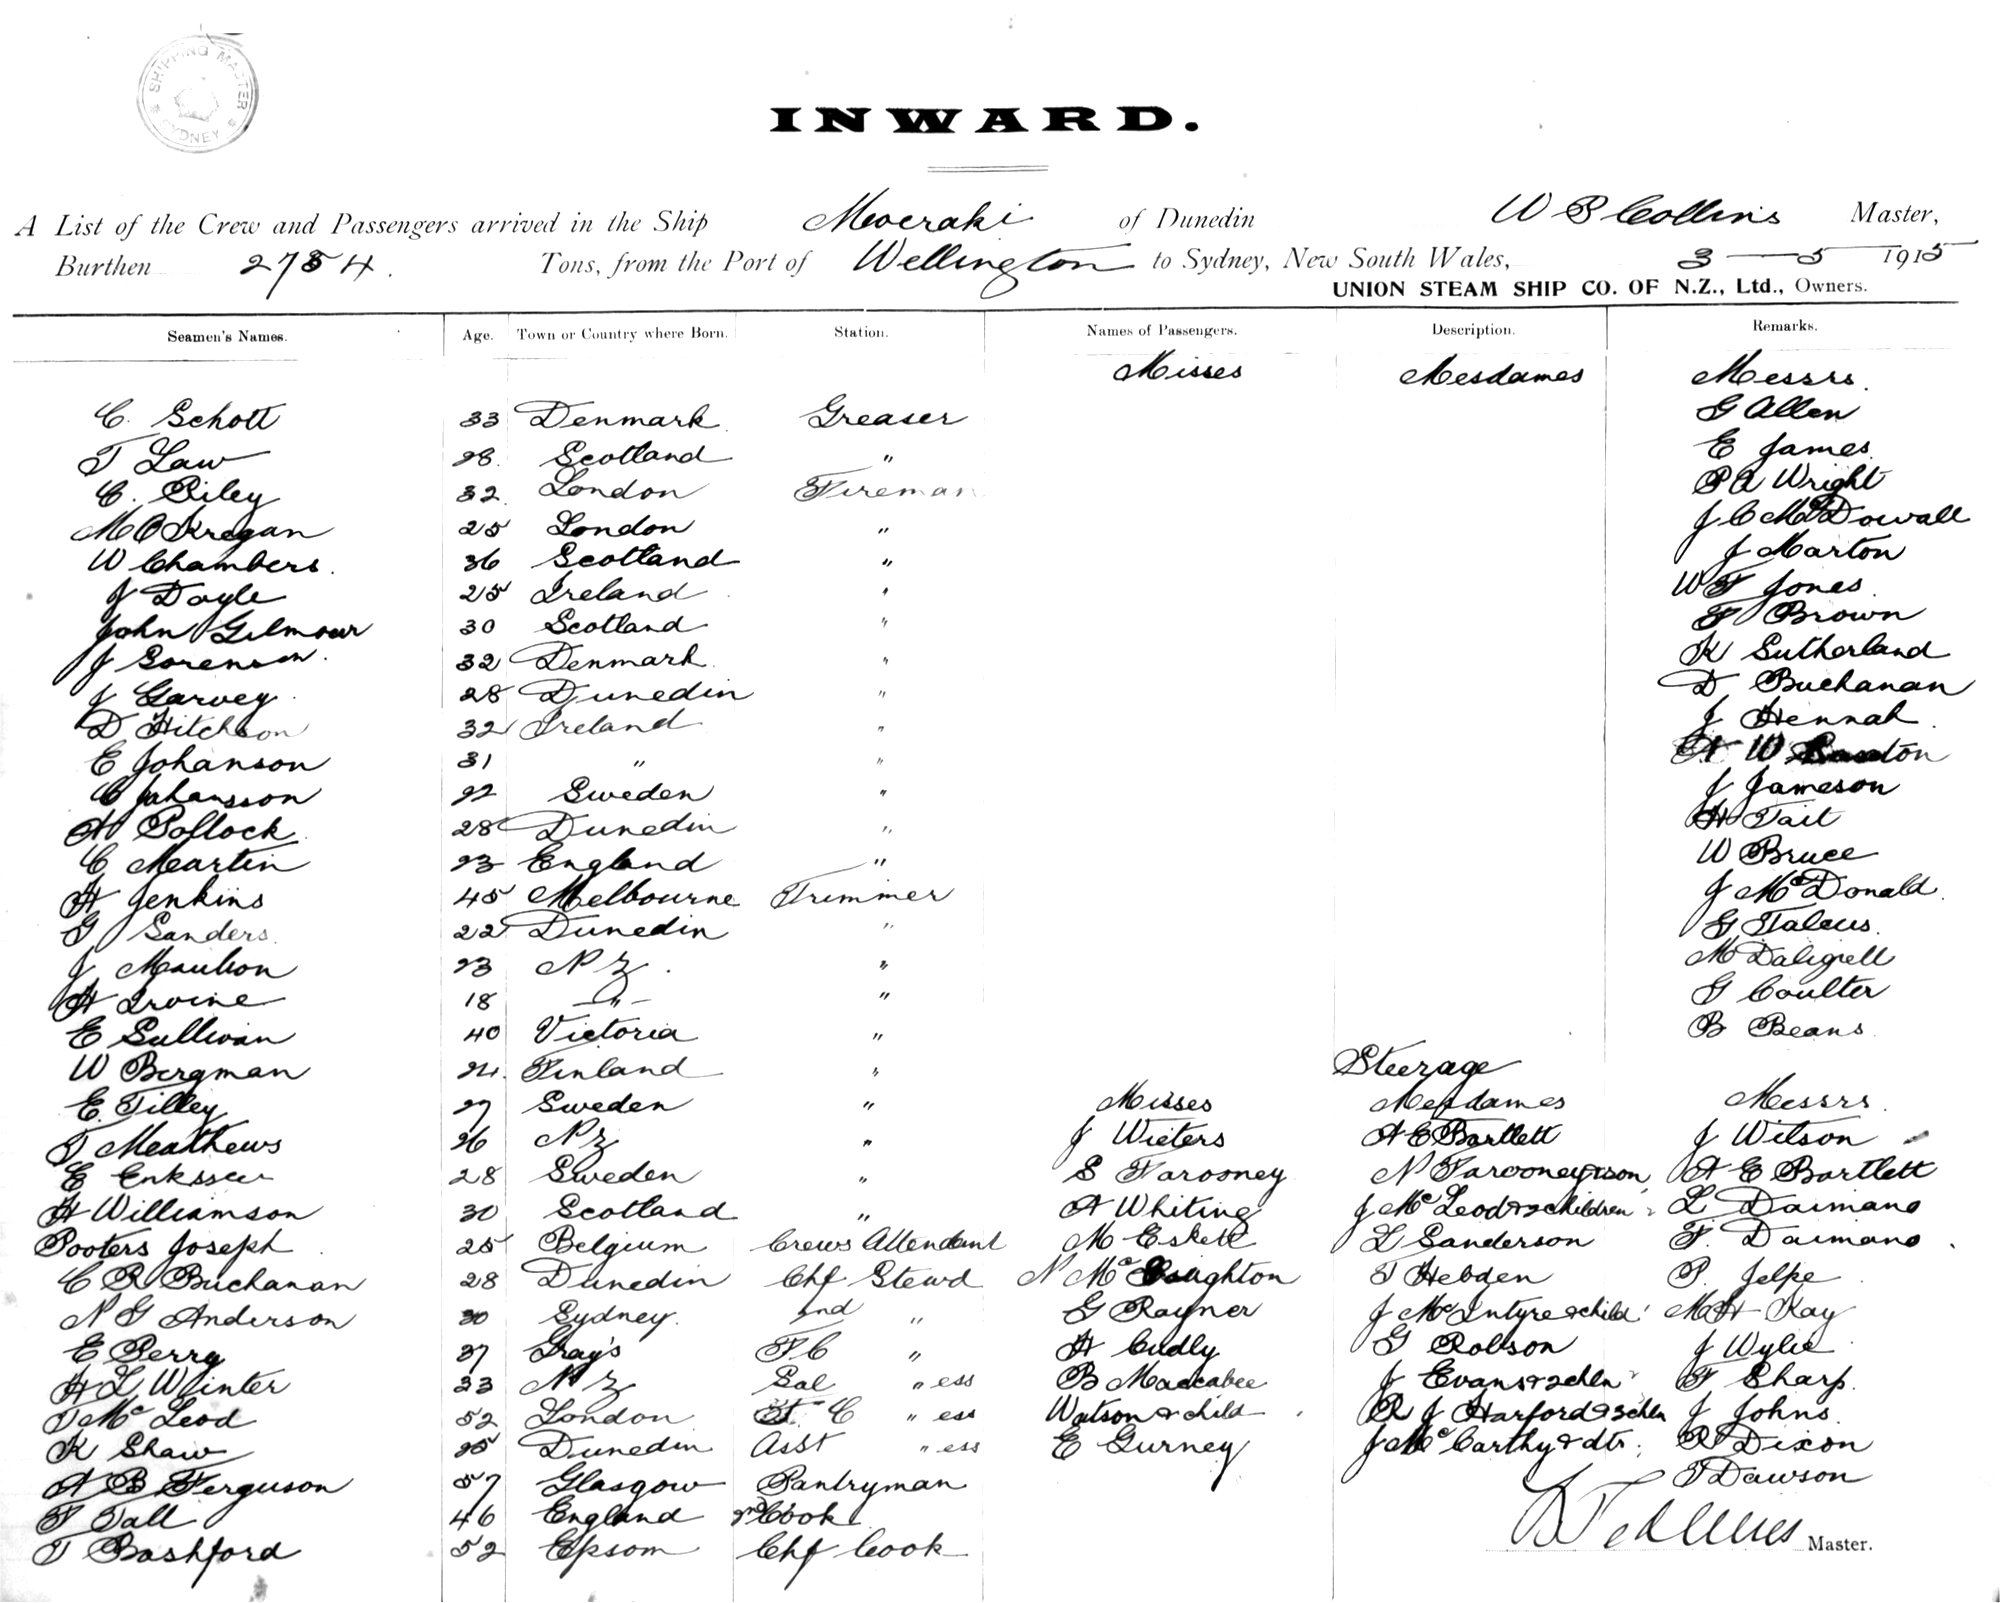 SHIPPING MASTER SYDNEY
INWARD.
A List of the Crew and Passengers arrived in the Ship Moeraki of Dunedin W B Collins Master,
Burthen 2784. Tons, from the Port of Wellington to Sydney, New South Wales, 3 - 5 1915
UNION STEAM SHIP CO. OF N.Z., Ltd., Owners.
Seamen's Names. Age. Town or Country where Born. Station. Names of Passengers. Description. Remarks.
Misses Mesdames Messrs.
C. Schott 33 Denmark Greaser G Allen
T Law 28 Scotland " E James
C. Riley 32 London Fireman P A Wright
M O Kregan 25 London " J C McDowall
W Chambers. 36 Scotland " J Marton
J Doyle 25 Ireland " W F Jones
John Gilmour 30 Scotland " F Brown
J Sorenson. 32 Denmark " K Sutherland
J Garvey 28 Dunedin " D Buchanan
D Hitchson 32 Ireland " J Hennah
E Johanson 31 " " W
C Johansson 22 Sweden " J Jameson
A Pollock 28 Dunedin " H Tait
C Martin 23 England " W Bruce
H Jenkins 45 Melbourne Trimmer J McDonald
G Sanders 22 Dunedin " G
J 23 N Z. " M
H Irvine 18 " " G Coulter
E Sullivan 40 Victoria " B Beans
W Bergman 24. Finland "
Steerage
E. Tilley 27 Sweden " Misses Mesdames Messrs.
T Matthews 26 N Z " J Wieters A E Bartlett J Wilson
E 28 Sweden " S Farooney N Farooney & son A E Bartlett
H Williamson 30 Scotland " A Whiting J McLeod & 2 children L Daimano
Pooters Joseph 25 Belgium Crews Attendant M Eskett L Sanderson F. Daimano
C R Buchanan 28 Dunedin Chf Stewd N T Hebden P. Jelpe
N G Anderson 30 Sydney. 2nd " G Rayner J McIntyre & child M H Kay
E Perry 37 Gray's F C " A Cudly G Robson J Wylie
H L Winter 33 N Z Sal " ess B Maccabee J Evans & 2 chln F Sharp.
T McLeod 52 London C " ess Watson & child R J Harford & 3 chln J Johns.
K Shaw 25 Dunedin Asst " ess E Gurney J McCarthy & dtr. R Dixon
A B Ferguson 57 Glasgow Pantryman T Dawson
F Tall 46 England 2nd Cook
T Bashford 52 Epsom Chf Cook Master.